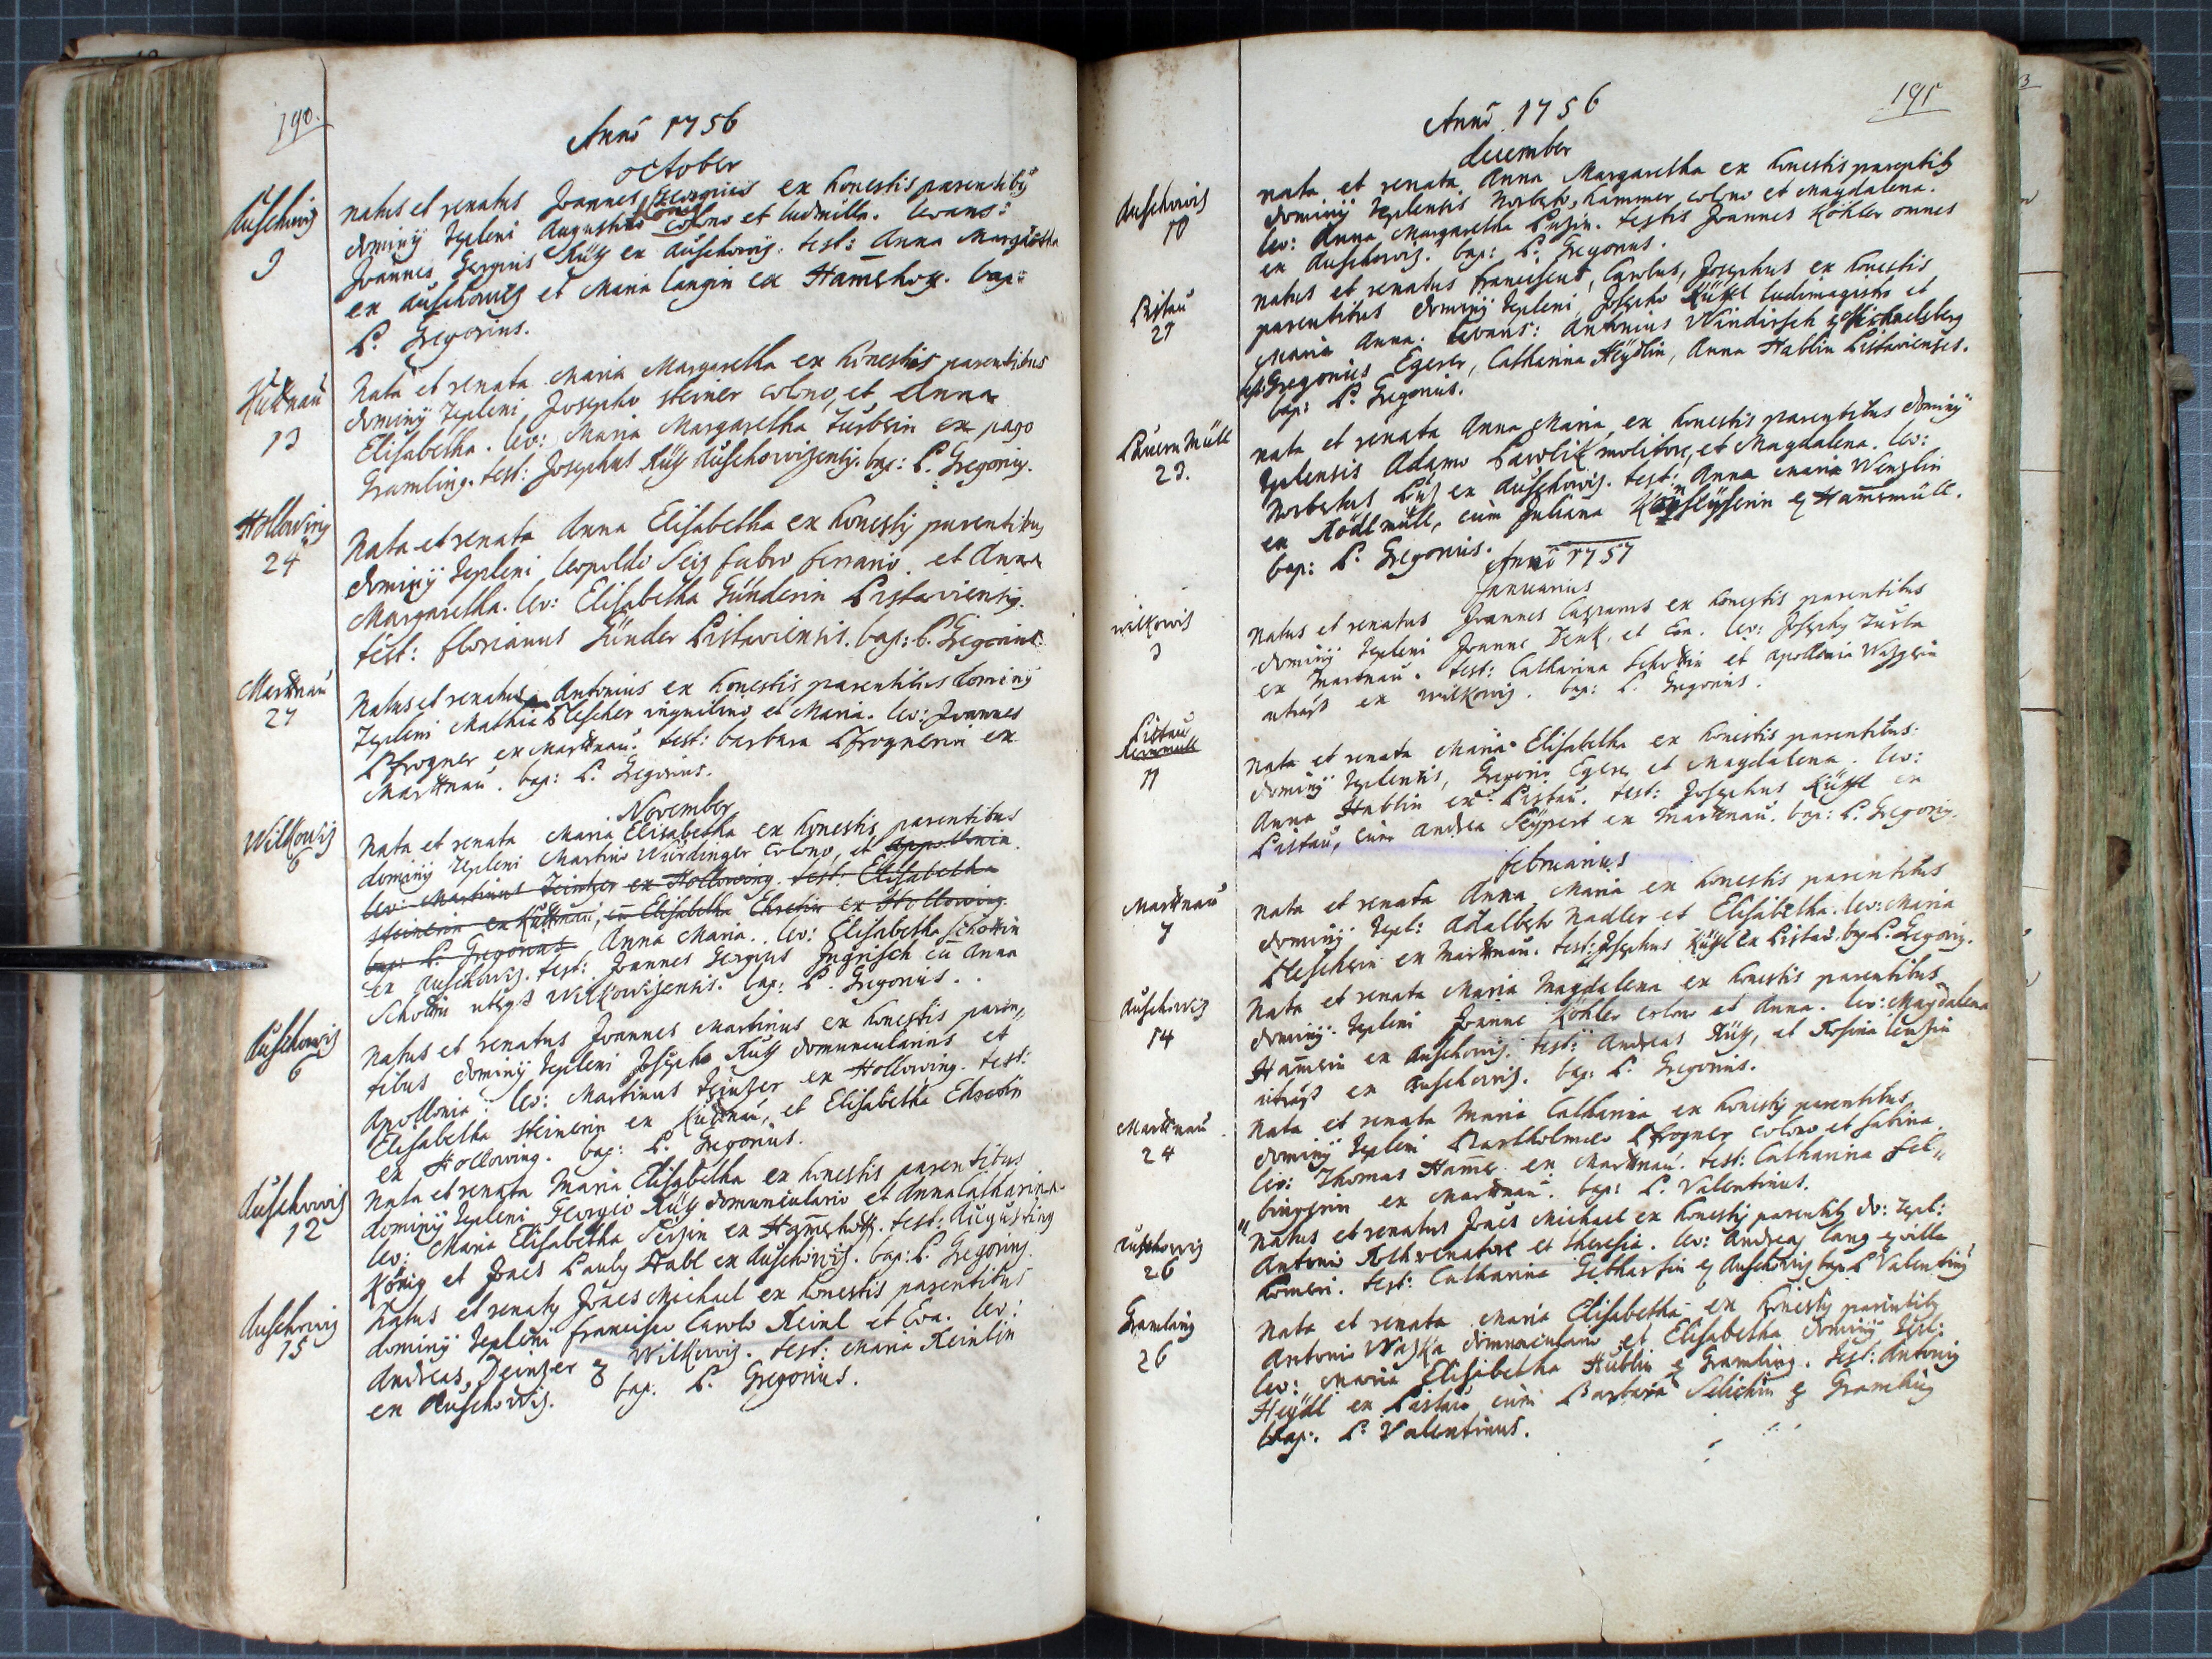 190.
Anno 1756
october
Auschowiz
9
natus et renatus Joannes Georgius ex honestis parentibus
dominij Tepleni Augustino König colono et ludmilla. levans:
Joannes Georgius Rüz ex Auschowiz. test: Anna Margaretha
ex Auschowiz et Maria Langin ex Hamerhoff. bap:
P. Gregorius.
Kuttnau
13
Nata et renata Maria Margaretha ex honestis parentibus
dominij Tepleni Josepho steiner colono, et Anna
Elisabetha. lev: Maria Margaretha ex pago
Gramling. test: Josephus Rüz Auschowizensis. bap: P. Gregorius.
Hollowing
24
Nata et renata Anna Elisabetha ex honestis parentibus
dominij Tepleni leopoldo Seiz fabro ferrario, et Anna
Margaretha. lev: Elisabetha Günderin Pistaviensis.
test: florianus Günder Pistaviensis. bap: P. Gregorius.
Martnau
27
Natus et renatus Antonius ex honestis parentibus dominij
Tepleni Mathia Plescher inquilino et Maria. lev: Joannes
Pfrogner ex Martnau. test: barbara Pfrognerin ex
Martnau. bap: P. Gregorius.
November
Wilkowiz
6
Nata et renata Maria Elisabetha ex honestis parentibus
dominij Tepleni Martino Würdinger colono, et Appollonia.
lev: Martinus Teintzer ex Hollowing. test: Elisabetha
steinerin ex Kuttnau, cu Elisabetha Ehretin ex Hollowing.
bap: P. Gregorius Anna Maria. lev: Elisabetha Schottin
ex Auschowiz. test: Joannes Georgius Ingrisch cu Anna
Schottin Wilkowizensis. bap: P. Gregorius.
Auschowiz
6
Natus et renatus Joannes Martinus ex honestis paren„
tibus dominij Tepleni Josepho Rüz domunculario et
Apollonia. lev: Martinus Teintzer ex Hollowing. test:
Elisabetha steinerin ex Kuttnau, et Elisabetha Ehretin
ex Hollowing. bap: P. Gregorius.
Auschowiz
12
Nata et renata Maria Elisabetha ex honestis parentibus
dominij Tepleni Georgio Rüz domunculario et Anna Catharina.
lev: Maria Elisabetha ex Hamerhoff. test: Augustinus
König et Joães Pauly Habl ex Auschowiz. bap: P. Gregorius.
Auschowiz
15
Natus et renatus Joães Michael ex honestis parentibus
dominij Tepleni francisco Carolo Keinl et Eva. lev:
Andreas Deintzer ex Wilkowiz. test: Maria Keinlin
ex Auschowiz. bap. P. Gregorius.
191
Anno 1756
december
Auschowiz
10
nata et renata Anna Margaretha ex honestis parentibus
dominij Teplensis Norberto Hammer, colono et Magdalena.
lev: Anna Margaretha testis Joannes Köhler omnes
ex Auschowiz. bap: P. Gregorius.
Pistau
21
Natus et renatus franciscus, Carolus, Josephus ex honestis
parentibus dominij Tepleni, Josepho Küttl ludimagistro et
Maria Anna. levans: Antonius Windirsch ex Michaelsberg
test: Gregorius Egerer, Catharina Heydlin, Anna Hablin Pistavienses.
bap: P. Gregorius.
Pauern Müll
23.
nata et renata Anna Maria ex honestis parentibus dominij
Teplensis Adamo Pawlik molitore, et Magdalena. lev:
Norbertus ex Auschowiz. test: Anna Maria Wenzlin
ex Rödlmüll, cum Juliana ex Hamermüll.
bap: P. Gregorius.
Anno 1757
Januarius
wilkowiz
3
Natus et renatus Joannes Casparus ex honestis parentibus
dominij Tepleni Joanne Denk, et Eva. lev: Josephus
ex Martnau. test: Catharina Schottin et Apollonia
ex wilkowiz. bap: P. Gregorius.
Pistau
11
Nata et renata Maria Elisabetha ex honestis parentibus
dominij Teplensis, Gregorio Egerer et Magdalena. lev:
Anna Hablin ex Pistau. test: Josephus Küttl ex
Pistau, cum Andrea Seyppert ex Martnau. bap: P. Gregorius.
februarius
Martnau
7
Nata et renata Anna Maria ex honestis parentibus
dominij Tepl: Adalberto Nadler et Elisabetha. lev: Maria
Plescherin ex Martnau. test: Josephus Küttl ex Pistau. bap. P. Gregorius.
Auschowiz
14
Nata et renata Maria Magdalena ex honestis parentibus
dominij Tepleni Joanne Köhler colono et Anna. lev: Magdalena
Hamerin ex Auschowiz. test: Andreas Rüz, et Rosina
ex Auschowiz. bap: P. Gregorius.
Martnau
24
Nata et renata Maria Catharina ex honestis parentibus
dominij Tepleni Bartholomeo Pfrogner colono et Sabina.
lev: Thomas Hamer ex Martnau. test: Catharina Fel„
„bingerin ex Martnau. bap: P. Valentinus.
Auschowiz
26
Natus et renatus Joães Michael ex honestis parentibus do: Tepl:
Antonio venatore et Theresia. lev: Andreas Lang ex villa
Komeri. test: Catharina Gebhartin ex Auschowiz bap. P. Valentinus
Gramling
26
Nata et renata Maria Elisabetha ex honestis parentibus
Antonio Waska domunculario et Elisabetha dominij Tepl:
lev: Maria Elisabetha Hüblin ex Gramling. test: Antonius
Heydl ex Pistau cum Barbara ex Gramling
bap. P. Valentinus.